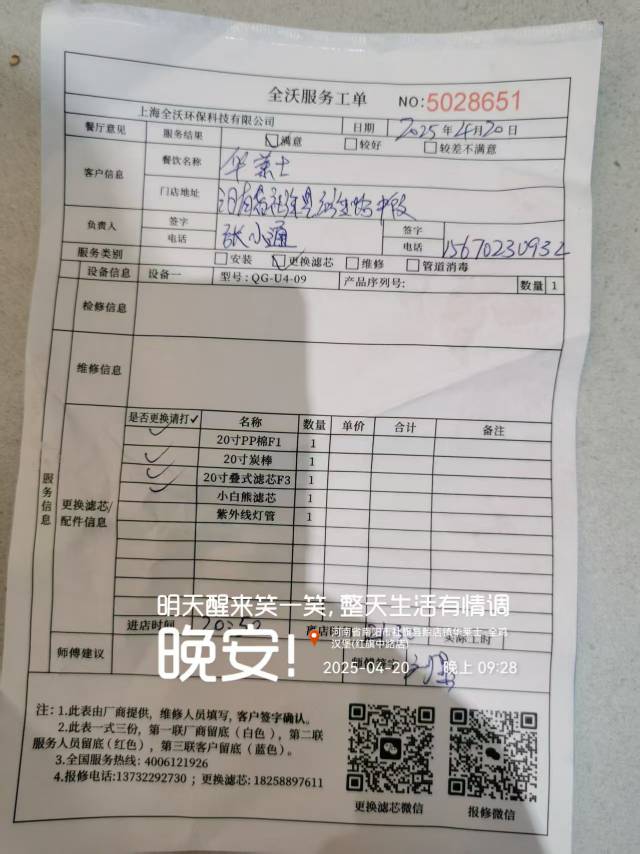 全沃服务工单 NO:5028651
上海全沃环保科技有限公司 日期 2025年4月20日
餐厅意见 服务结果 ☑满意 □较好 □较差不满意
客户信息 餐饮名称 华莱士
门店地址
负责人 签字 张小通 签字
电话 电话 15670230932
服务类别 □安装 ☑更换滤芯 □维修 □管道消毒
设备信息 设备一 型号:QG-U4-09 产品序列号: 数量 1
检修信息
维修信息
服务信息
更换滤芯/配件信息
是否更换请打✓ 名称 数量 单价 合计 备注
✓ 20寸PP棉F1 1
✓ 20寸炭棒 1
✓ 20寸叠式滤芯F3 1
小白熊滤芯 1
紫外线灯管 1
明天醒来笑一笑,整天生活有情调
进店时间 20:50 实际工时
师傅建议
晚安!
河南省南阳市社旗县赊店镇华莱士·全鸡
汉堡(红旗中路店)
2025-04-20 晚上 09:28
注:1.此表由厂商提供,维修人员填写,客户签字确认。
2.此表一式三份,第一联厂商留底(白色),第二联
服务人员留底(红色),第三联客户留底(蓝色)。
3.全国服务热线:4006121926
4.报修电话:13732292730;更换滤芯:18258897611
更换滤芯微信 报修微信